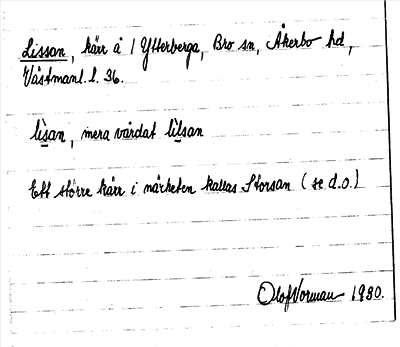 Lissan, kärr å 1 Ytterberga, Bro sn, Åkerbo hd,
Västmanl. l. 36.
lìsan, mera vårdat lìlsan
Ett större kärr i närheten kallas Storsan (se d.o.)
Olof Norman 1930.